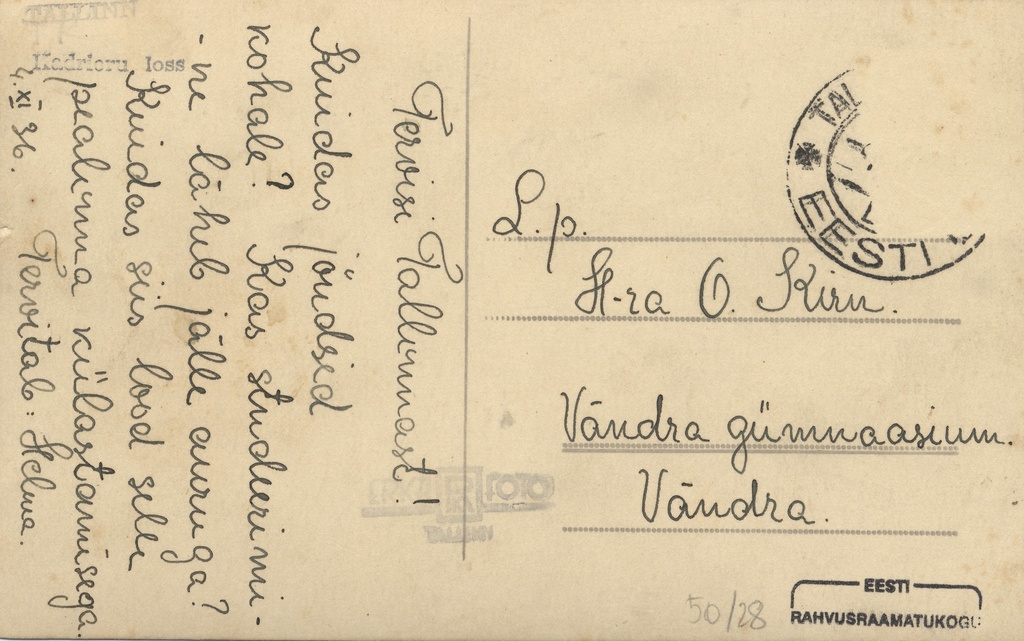 TALLINN
Kadrioru loss
Tervisi Tallinnast!
Kuidas jõudsid
kohale? Kas studeerimi-
-ne läheb jälle auruga?
Kuidas siis lood selle
pealinna külastamisega.
Tervitab: Helma.
4. XI 36.
TAL
EESTI
L. p.
H-ra O. Kirn.
Vändra gümnaasium.
Vändra.
FOTO
TALLINN
50/28
EESTI
RAHVUSRAAMATUKOGU